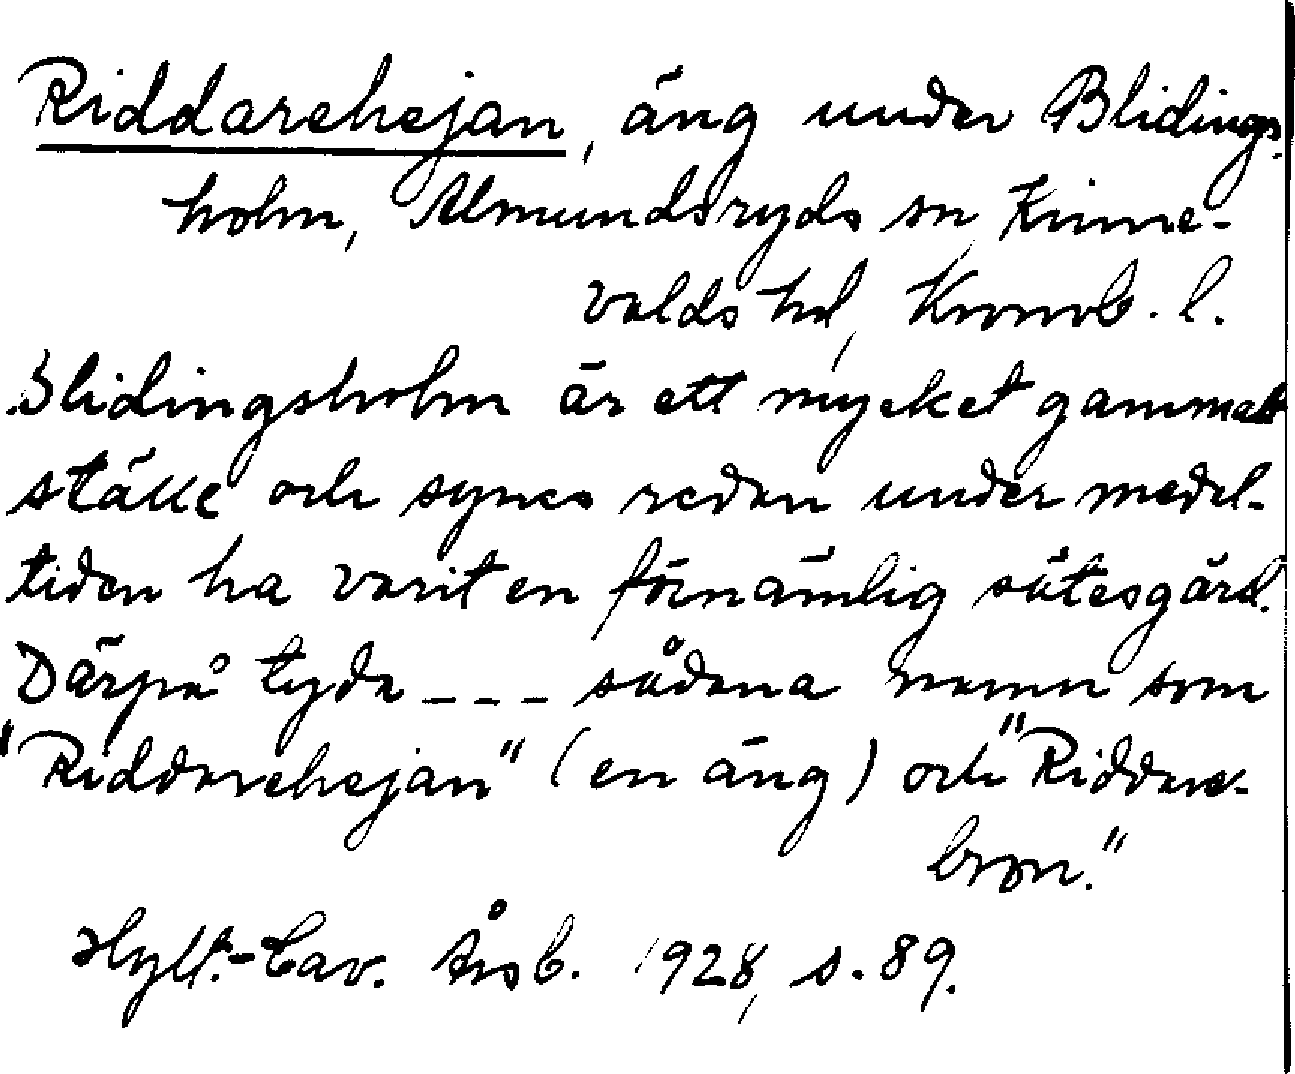 Riddarehejan, äng under Blidings-
holm, Almundsryds sn, Kinne-
valds hd, Kronob. l.
Blidingsholm är ett mycket gammalt
ställe och synes redan under medel-
tiden ha varit en förnämlig sätesgård.
Därpå tyda _ _ _ sådana namn som
"Riddarehejan" (en äng) och "Riddare-
bron."
Hylt.-Cav. Årsb. 1928, s. 89.